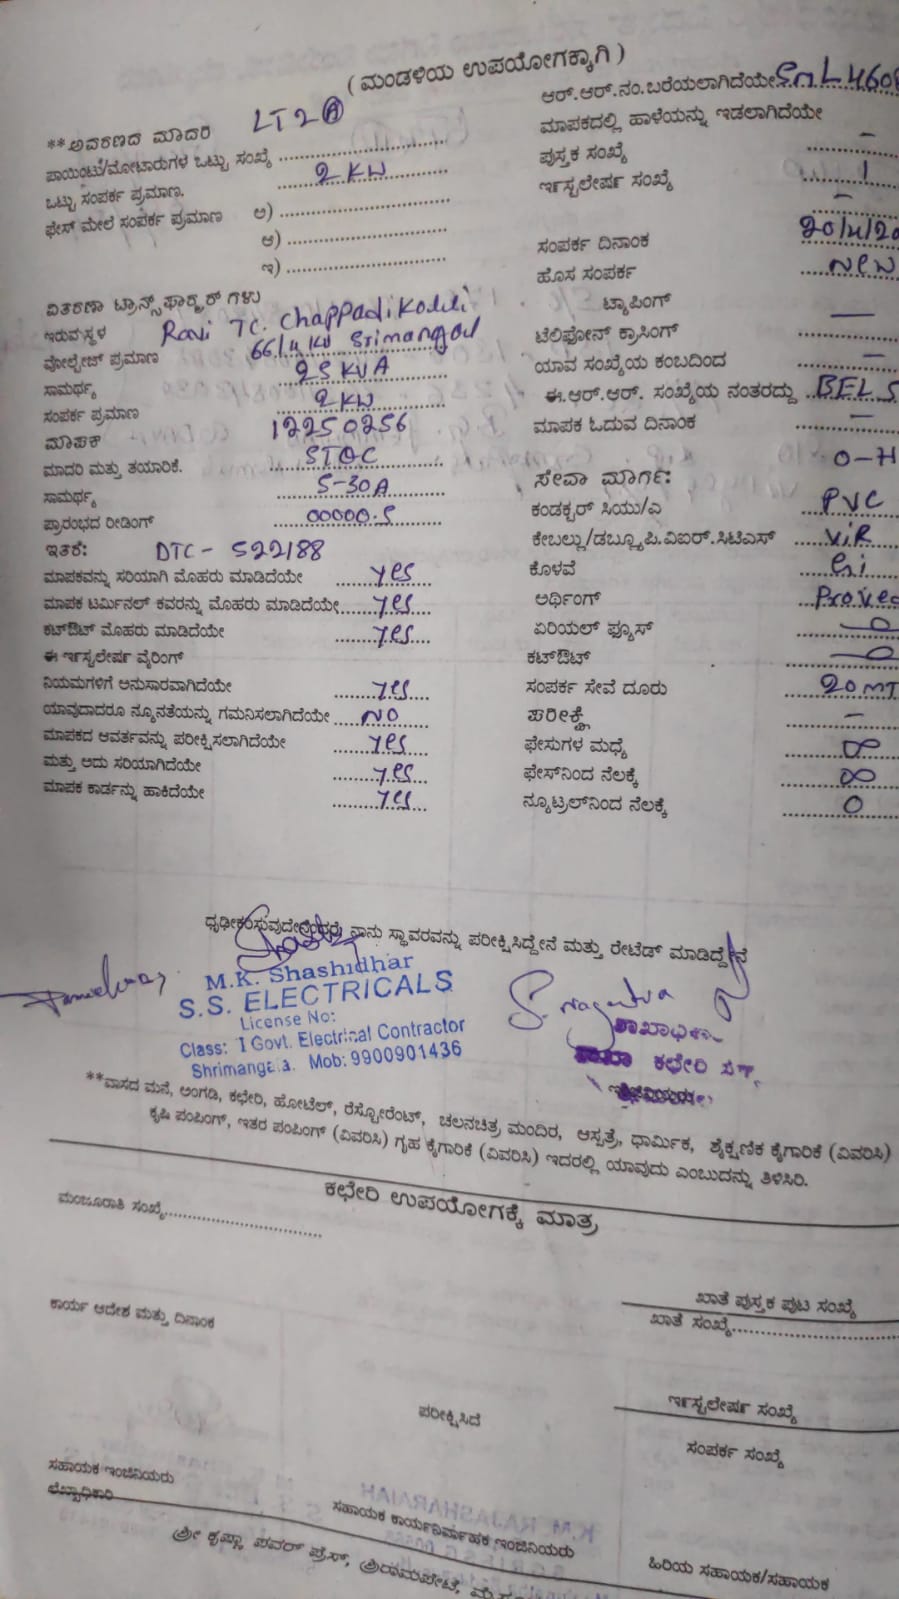 ( ಮಂಡಳಿಯ ಉಪಯೋಗಕ್ಕಾಗಿ )
**ಆವರಣದ ಮಾದರಿ LT2(A)
ಪಾಯಿಂಟು/ಮೋಟಾರುಗಳ ಒಟ್ಟು ಸಂಖ್ಯೆ
ಒಟ್ಟು ಸಂಪರ್ಕ ಪ್ರಮಾಣ. 2 KW
ಫೇಸ್ ಮೇಲೆ ಸಂಪರ್ಕ ಪ್ರಮಾಣ ಅ)
ಆ)
ಇ)
ವಿತರಣಾ ಟ್ರಾನ್ಸ್‌ಫಾರ್ಮರ್ ಗಳು
ಇರುವ ಸ್ಥಳ Ravi TC. Chappadi Kolli
ವೋಲ್ಟೇಜ್ ಪ್ರಮಾಣ 66/11 KV Srimangal
ಸಾಮರ್ಥ್ಯ 25 KVA
ಸಂಪರ್ಕ ಪ್ರಮಾಣ 2KW
ಮಾಪಕ 12250256
ಮಾದರಿ ಮತ್ತು ತಯಾರಿಕೆ.
ಸಾಮರ್ಥ್ಯ 5-30A
ಪ್ರಾರಂಭದ ರೀಡಿಂಗ್ 00000.5
ಇತರೆ: DTC - 522188
ಮಾಪಕವನ್ನು ಸರಿಯಾಗಿ ಮೊಹರು ಮಾಡಿದೆಯೇ yes
ಮಾಪಕ ಟರ್ಮಿನಲ್ ಕವರನ್ನು ಮೊಹರು ಮಾಡಿದೆಯೇ yes
ಕಟ್‌ಔಟ್ ಮೊಹರು ಮಾಡಿದೆಯೇ yes
ಈ ಇನ್‌ಸ್ಟಲೇಷನ್ ವೈರಿಂಗ್
ನಿಯಮಗಳಿಗೆ ಅನುಸಾರವಾಗಿದೆಯೇ yes
ಯಾವುದಾದರೂ ನ್ಯೂನತೆಯನ್ನು ಗಮನಿಸಲಾಗಿದೆಯೇ NO
ಮಾಪಕದ ಆವರ್ತವನ್ನು ಪರೀಕ್ಷಿಸಲಾಗಿದೆಯೇ yes
ಮತ್ತು ಅದು ಸರಿಯಾಗಿದೆಯೇ yes
ಮಾಪಕ ಕಾರ್ಡನ್ನು ಹಾಕಿದೆಯೇ yes
ಆರ್.ಆರ್.ನಂ.ಬರೆಯಲಾಗಿದೆಯೇ SML4608
ಮಾಪಕದಲ್ಲಿ ಹಾಳೆಯನ್ನು ಇಡಲಾಗಿದೆಯೇ
ಪುಸ್ತಕ ಸಂಖ್ಯೆ -
ಇನ್‌ಸ್ಟಲೇಷನ್ ಸಂಖ್ಯೆ 1
-
ಸಂಪರ್ಕ ದಿನಾಂಕ
ಹೊಸ ಸಂಪರ್ಕ New
ಟ್ಯಾಪಿಂಗ್
ಟೆಲಿಫೋನ್ ಕ್ರಾಸಿಂಗ್ —
ಯಾವ ಸಂಖ್ಯೆಯ ಕಂಬದಿಂದ —
ಈ.ಆರ್.ಆರ್. ಸಂಖ್ಯೆಯ ನಂತರದ್ದು
ಮಾಪಕ ಓದುವ ದಿನಾಂಕ —
ಸೇವಾ ಮಾರ್ಗ: O-H
ಕಂಡಕ್ಟರ್ ಸಿಯು/ಎ PVC
ಕೇಬಲ್ಲು/ಡಬ್ಲ್ಯೂ.ಪಿ.ವಿಐಆರ್.ಸಿಟಿಎಸ್ ViR
ಕೊಳವೆ Gi
ಅರ್ಥಿಂಗ್
ಏರಿಯಲ್ ಫ್ಯೂಸ್ 0
ಕಟ್‌ಔಟ್ 0
ಸಂಪರ್ಕ ಸೇವೆ ದೂರು 20 MT
ಪರೀಕ್ಷೆ -
ಫೇಸುಗಳ ಮಧ್ಯೆ ∞
ಫೇಸ್‌ನಿಂದ ನೆಲಕ್ಕೆ ∞
ನ್ಯೂಟ್ರಲ್‌ನಿಂದ ನೆಲಕ್ಕೆ 0
ಧೃಢೀಕರಿಸುವುದೇನೆಂದರೆ, ನಾನು ಸ್ಥಾವರವನ್ನು ಪರೀಕ್ಷಿಸಿದ್ದೇನೆ ಮತ್ತು ರೇಟೆಡ್ ಮಾಡಿದ್ದೇನೆ
M.K. Shashidhar
S.S. ELECTRICALS
License No:
Class: I Govt. Electrical Contractor
Shrimangala. Mob: 9900901436
ಕಛೇರಿ
**ವಾಸದ ಮನೆ, ಅಂಗಡಿ, ಕಛೇರಿ, ಹೋಟೆಲ್, ರೆಸ್ಟೋರೆಂಟ್, ಚಲನಚಿತ್ರ ಮಂದಿರ, ಆಸ್ಪತ್ರೆ, ಧಾರ್ಮಿಕ, ಶೈಕ್ಷಣಿಕ ಕೈಗಾರಿಕೆ (ವಿವರಿಸಿ)
ಕೃಷಿ ಪಂಪಿಂಗ್, ಇತರ ಪಂಪಿಂಗ್ (ವಿವರಿಸಿ) ಗೃಹ ಕೈಗಾರಿಕೆ (ವಿವರಿಸಿ) ಇದರಲ್ಲಿ ಯಾವುದು ಎಂಬುದನ್ನು ತಿಳಿಸಿರಿ.
ಕಛೇರಿ ಉಪಯೋಗಕ್ಕೆ ಮಾತ್ರ
ಮಂಜೂರಾತಿ ಸಂಖ್ಯೆ
ಖಾತೆ ಪುಸ್ತಕ ಪುಟ ಸಂಖ್ಯೆ
ಕಾರ್ಯ ಆದೇಶ ಮತ್ತು ದಿನಾಂಕ
ಖಾತೆ ಸಂಖ್ಯೆ
ಇನ್‌ಸ್ಟಲೇಷನ್ ಸಂಖ್ಯೆ
ಪರೀಕ್ಷಿಸಿದೆ
ಸಂಪರ್ಕ ಸಂಖ್ಯೆ
ಸಹಾಯಕ ಇಂಜಿನಿಯರು
ಲೆಖ್ಖಾಧಿಕಾರಿ
ಸಹಾಯಕ ಕಾರ್ಯನಿರ್ವಾಹಕ ಇಂಜಿನಿಯರು
ಹಿರಿಯ ಸಹಾಯಕ/ಸಹಾಯಕ
ಶ್ರೀ ಕೃಷ್ಣಾ ಪವರ್ ಪ್ರೆಸ್, ಶ್ರೀರಾಮಪೇಟೆ,